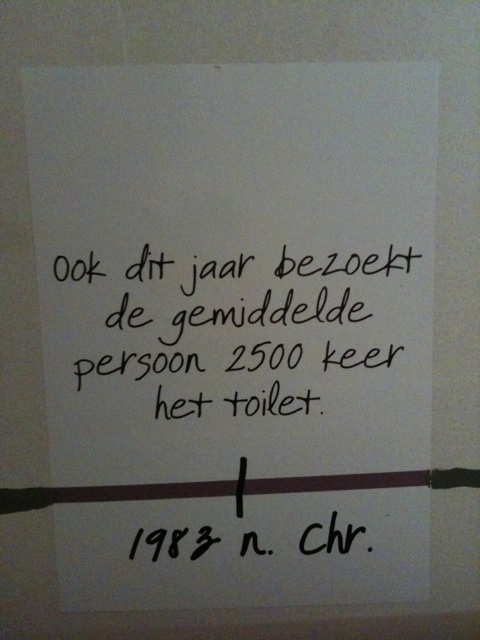 Ook dit jaar bezoekt
de gemiddelde
persoon 2500 keer
het toilet.
1983 n. Chr.